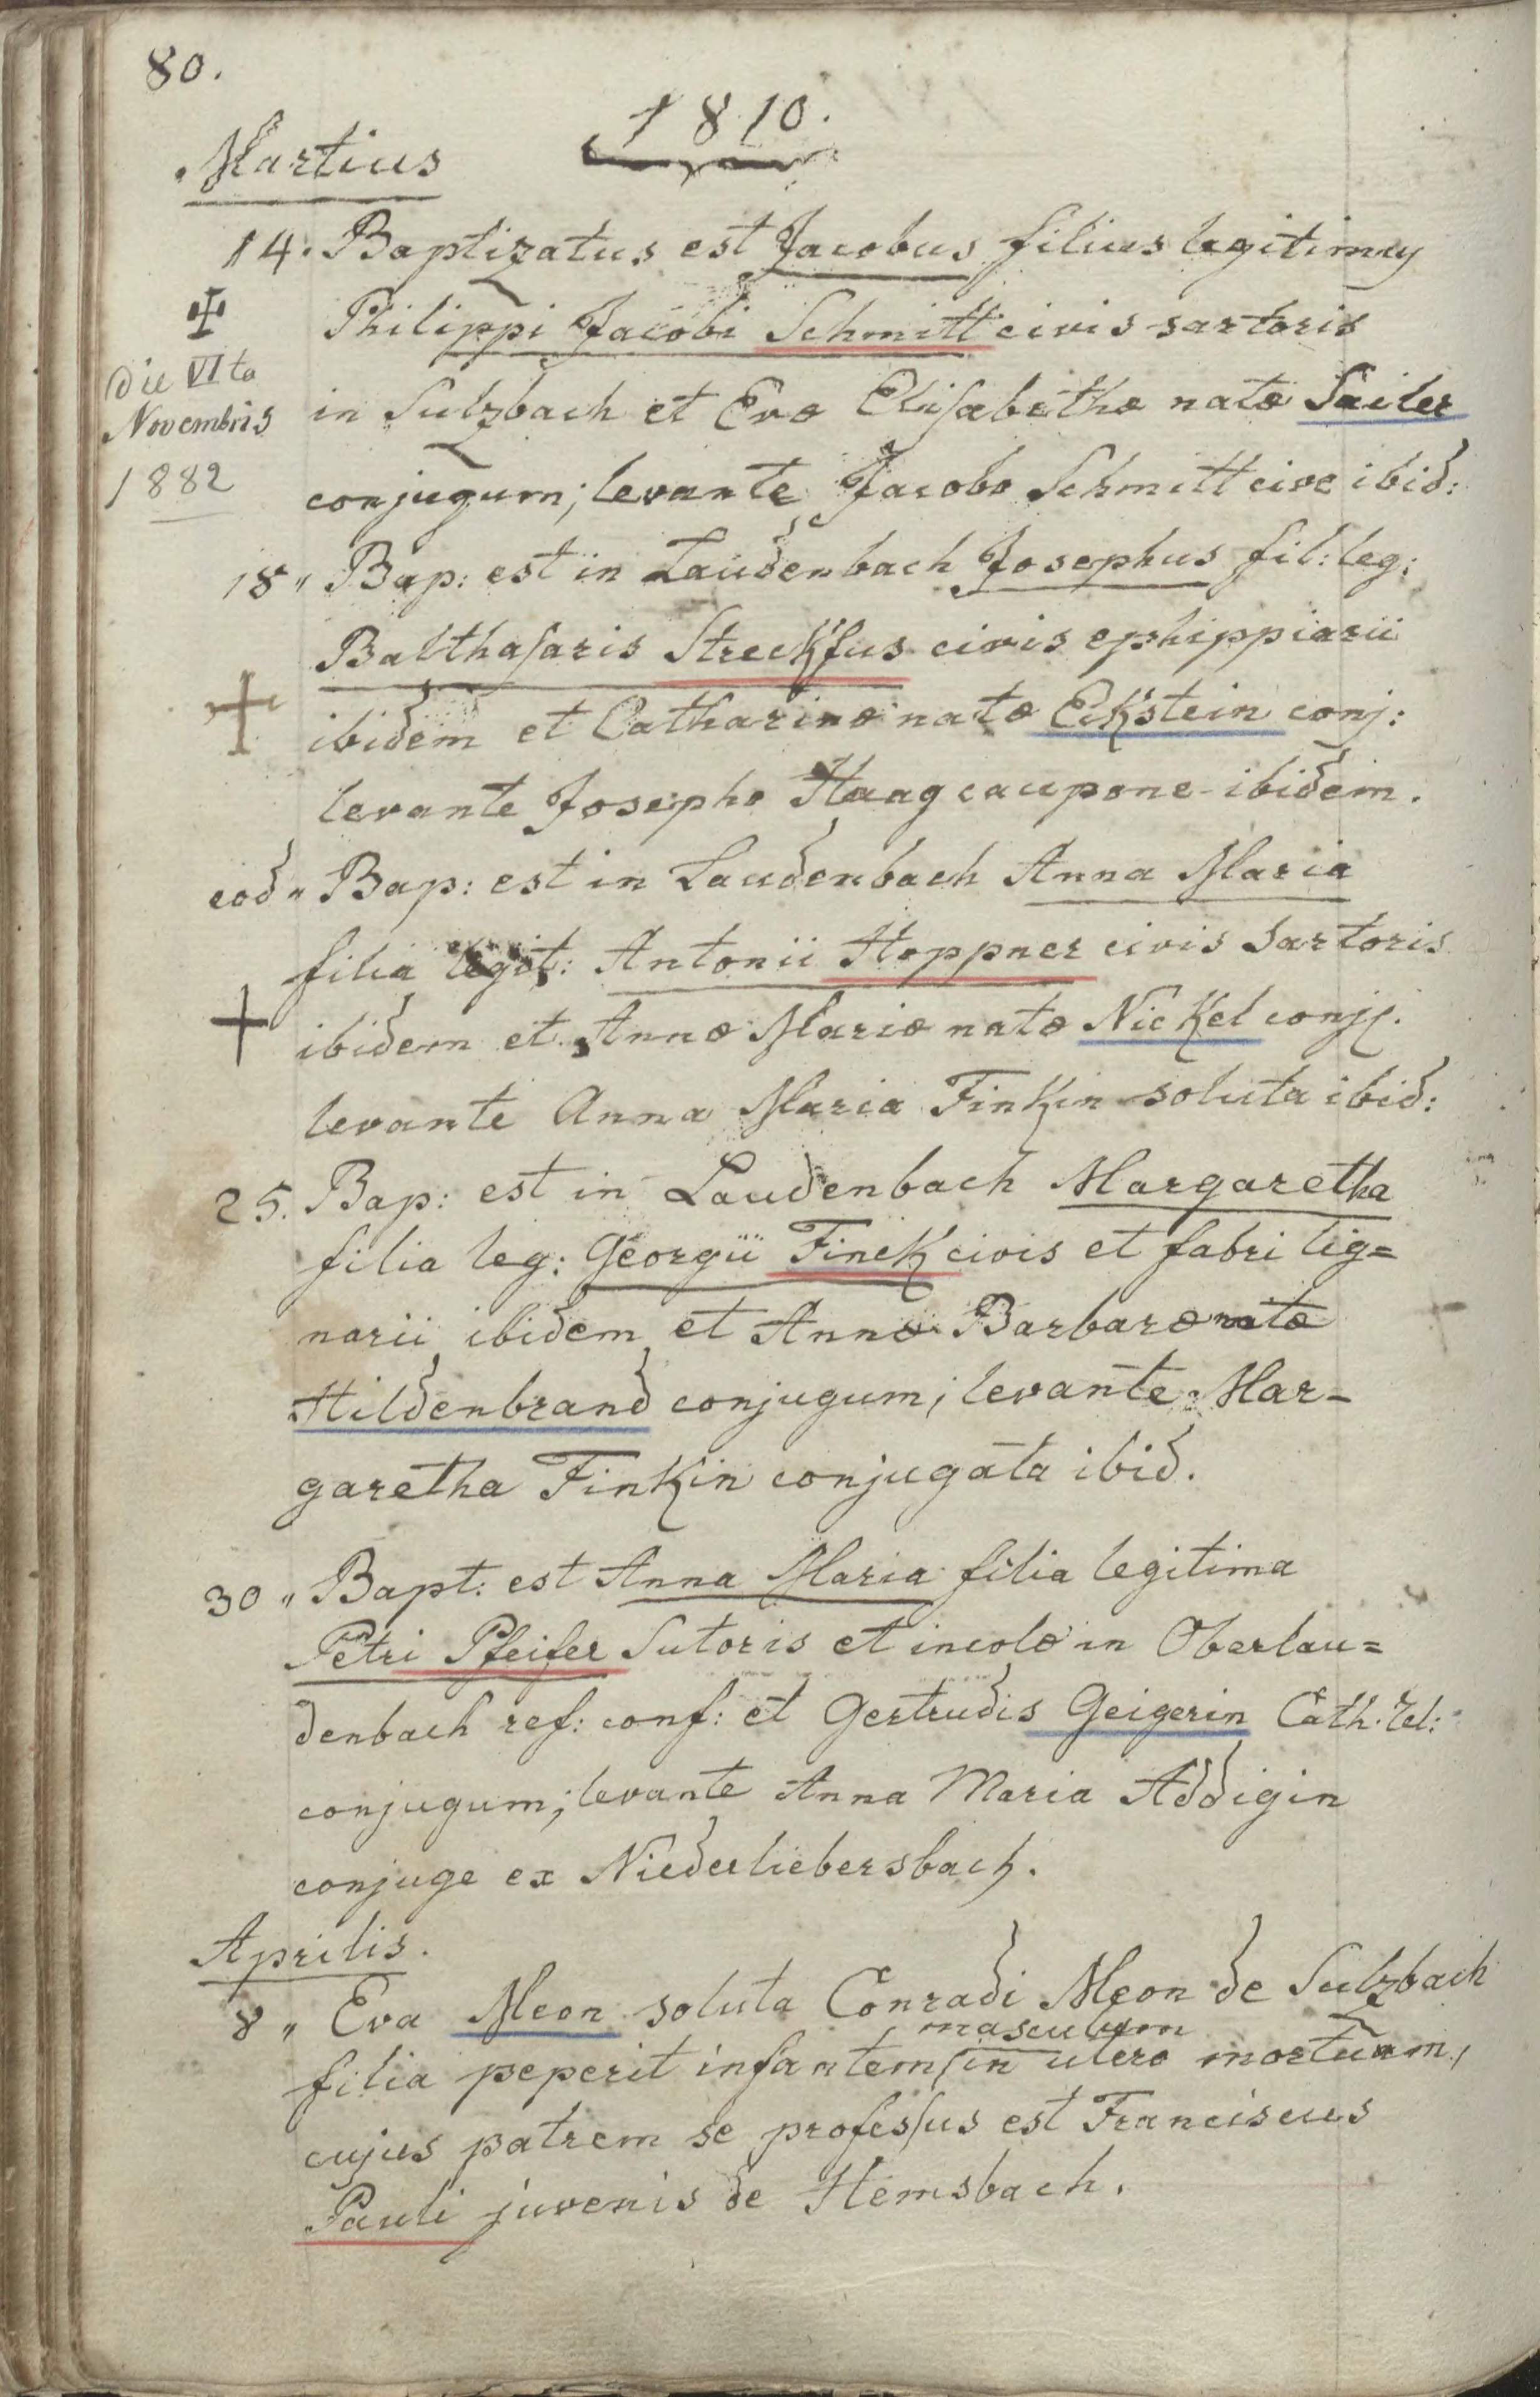 80.
1810.
Martius
14. Baptizatus est Jacobus filius legitimus
Philippi Jacobi Schmitt civis sartoris
in Sulzbach et Evæ Elisabethæ natæ Sailer
conjugum; levante Jacobo Schmitt cive ibid:
✠
die VIta
Novembris
1882
18" Bap: est in Laudenbach Josephus fil: leg:
Balthasaris Streckfus civis ephippiarii
ibidem et Catharinæ natæ Eckstein conj:
levante Josepho Haag caupone ibidem.
eod" Bap: est in Laudenbach Anna Maria
filia legit: Antonii Hoppner civis Sartoris
ibidem et Annæ Mariæ natæ Nickel conj.
levante Anna Maria Finkin soluta ibid:
25. Bap: est in Laudenbach Margaretha
filia leg: Georgii Finck civis et fabri lig=
narii ibidem et Annæ Barbaræ natæ
Hildenbrand conjugum; levante Mar-
garetha Finkin conjugata ibid.
30" Bapt: est Anna Maria filia legitima
Petri Pfeifer Sutoris et incolæ in Oberlau=
denbach ref: conf: et Gertrudis Geigerin Cath. rel:
conjugum; levante Anna Maria Addigin
conjuge ex Niederliebersbach.
Aprilis.
8" Eva Meon soluta Conradi Meon de Sulzbach
masculum
filia peperit infantem/in utero mortuum,
cujus patrem se professus est Franciscus
Pauli juvenis de Hemsbach.